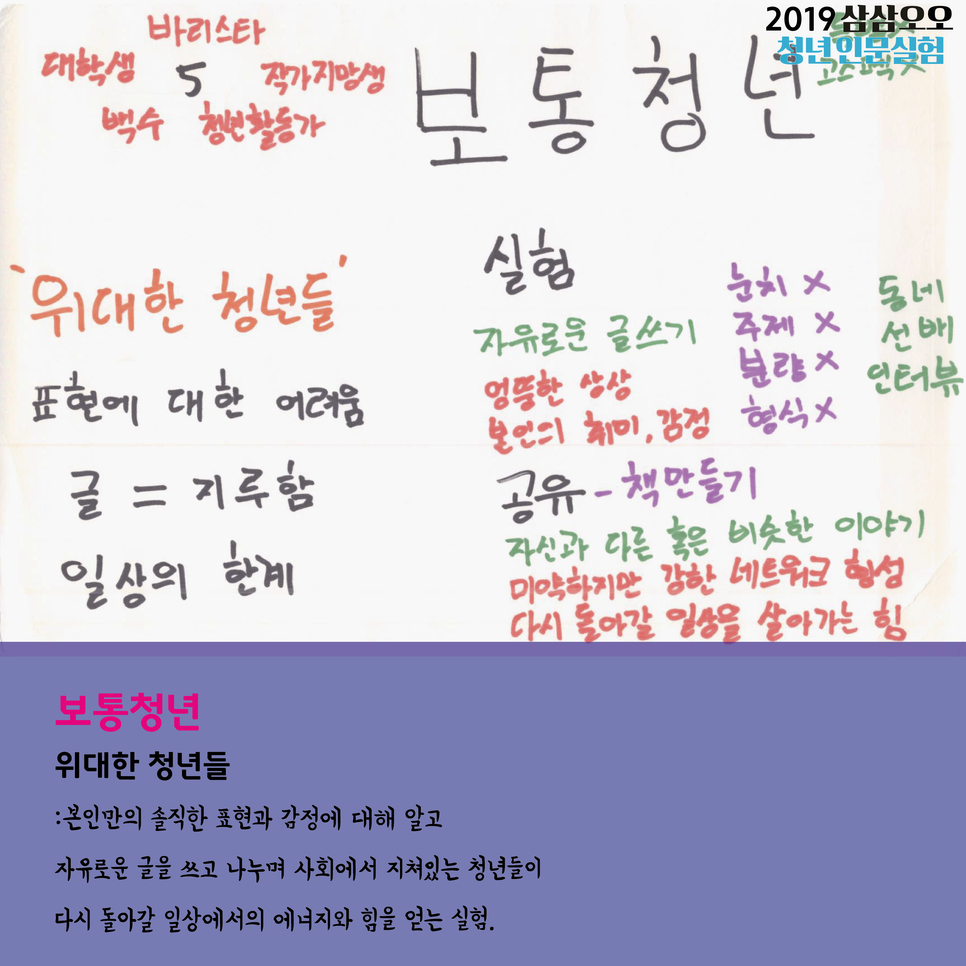 2019 삼삼오오
청년인문실험
바리스타
대학생 5 작가지망생
백수 청년활동가
보통청년
'위대한 청년들'
표현에 대한 어려움
글 = 지루함
일상의 한계
실험
자유로운 글쓰기
엉뚱한 상상
본인의 취미, 감정
눈치 X
주제 X
분량 X
형식 X
동네
선배
인터뷰
공유 - 책만들기
자신과 다른 혹은 비슷한 이야기
미약하지만 강한 네트워크 형성
다시 돌아갈 일상을 살아가는 힘
보통청년
위대한 청년들
:본인만의 솔직한 표현과 감정에 대해 알고
자유로운 글을 쓰고 나누며 사회에서 지쳐있는 청년들이
다시 돌아갈 일상에서의 에너지와 힘을 얻는 실험.